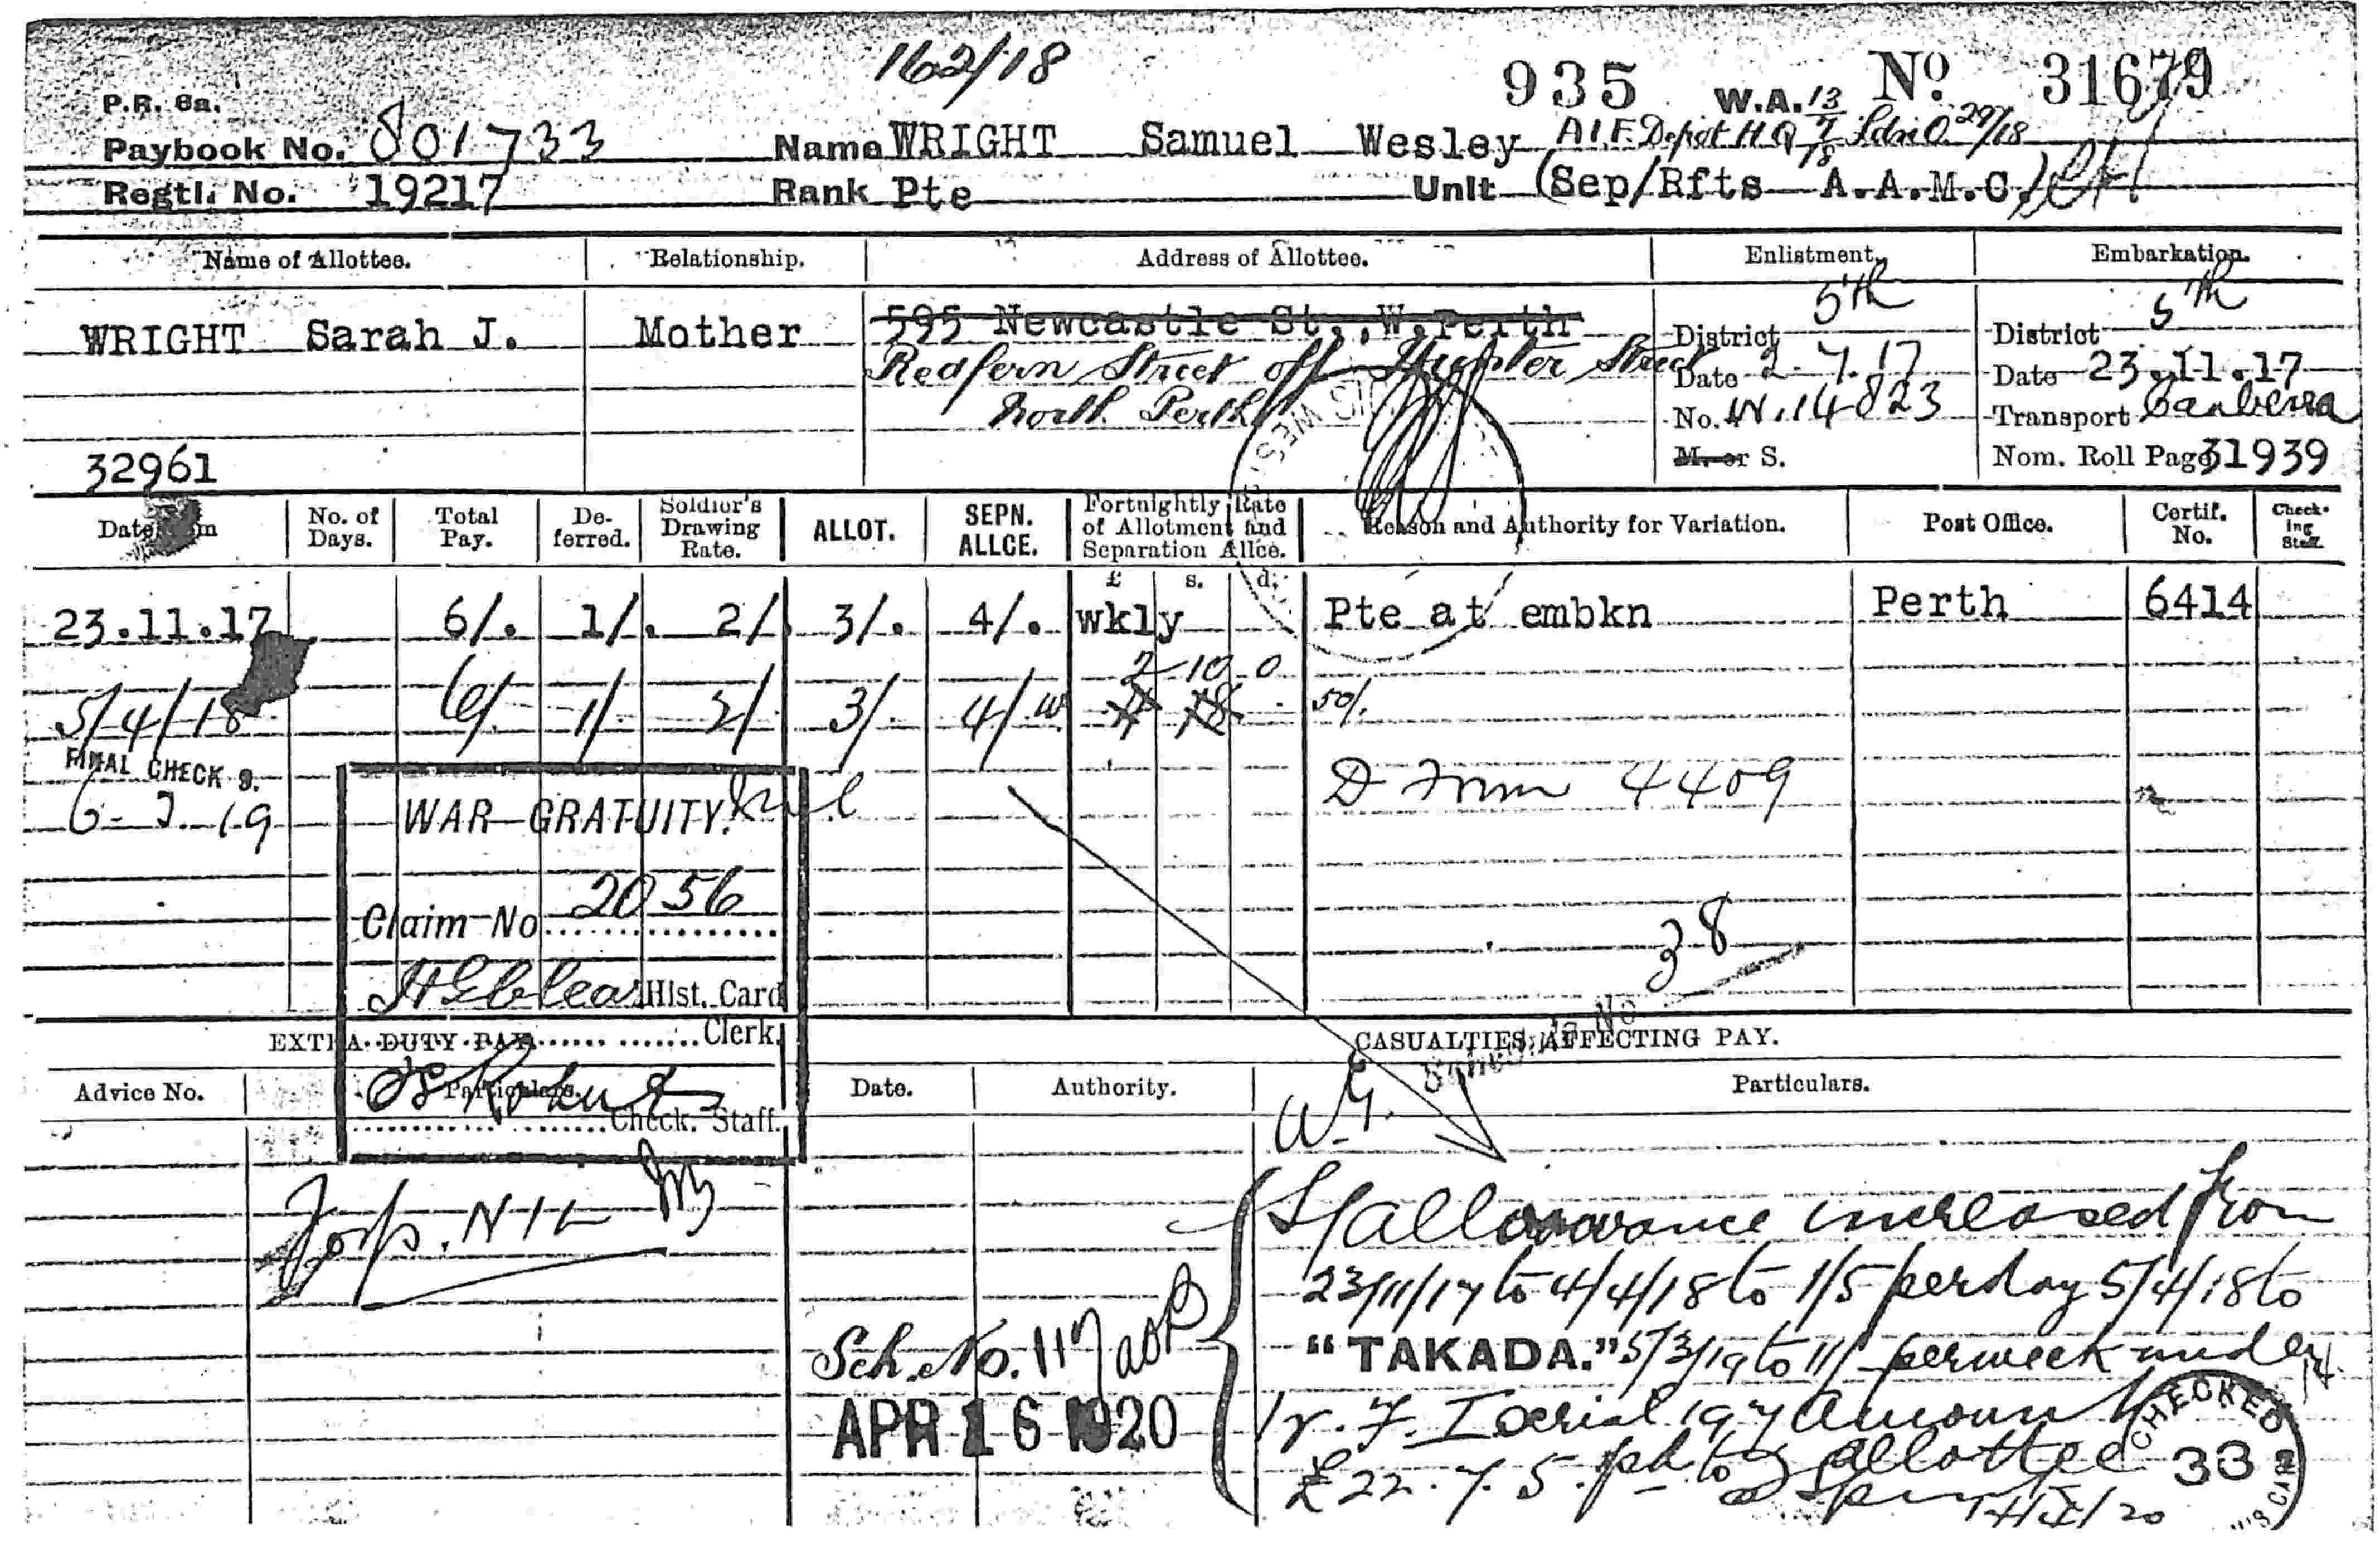 162/18
P.R. 6a. 935 W.A. 13/7/18 No. 31679
Paybook No. 801733 Name WRIGHT Samuel Wesley A.I.F. Depot H Q 29/18
Regtl. No. 19217 Rank Pte Unit (Sep/Rfts A.A.M.C.)
Name of Allottee. Relationship. Address of Allottee. Enlistment. Embarkation.
WRIGHT Sarah J. Mother 595 Newcastle St., W. Perth District 5th District 5th
Redfern Street off Hunter Street Date 2.7.17 Date 23.11.17
North Perth No. W.14823 Transport Canberra
32961 M. or S. Nom. Roll Page 31939
Date From No. of Days. Total Pay. De- ferred. Soldier's Drawing Rate. ALLOT. SEPN. ALLCE. Fortnightly Rate of Allotment and Separation Allce. Reason and Authority for Variation. Post Office. Certif. No. Check- ing Staff.
£ s. d.
23.11.17 6/. 1/. 2/. 3/. 4/. wkly Pte at embkn Perth 6414
2 10 0
5/4/18 6/ 1/ 2/ 3/ 4/w 50/.
FINAL CHECK 9.
6-3-19 D 4409
WAR GRATUITY.
Claim No 2056
38
Hist. Card
Clerk.
Schedule No
EXTRA DUTY PAY. CASUALTIES AFFECTING PAY.
Advice No. Particulars. Date. Authority. Particulars.
Check. Staff. W.G.
NIL
S/allowance increased from
23/11/17 to 4/4/18 to 1/5 per day 5/4/18 to
Sch. No. 117 "TAKADA." 5/3/19 to 11/ per week under
APR 16 1920 197 Amount
£22.7.5. pd to allottee
14/4/20
CHECKED 33